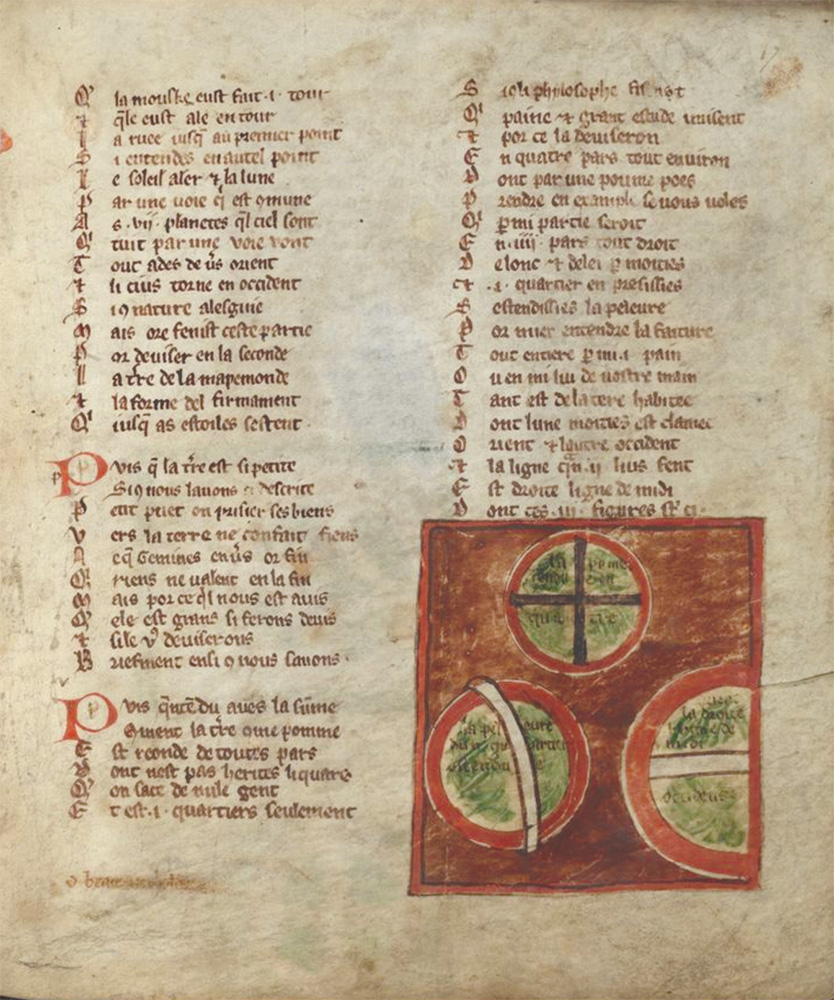 Q' la mouske eust fait .i. tour
⁊ q̄le eust ale en tour
L a ruee iusq̄ au premier point
S i entendes en autel point
L e soleil aler ⁊ la lune
P ar une uoie q̄ est 9mune
A s .vii. planetes q̄l ciel sont
Q' tuit par une voie vont
T out ades de ū̄s orient
⁊ li cius torne en occident
S i 9 nature alesguie
M ais ore fenist ceste partie
P or deviser en la seconde
L a tr̄e de la mapemonde
⁊ la forme del firmament
Q' iusq̄ as estoiles sestent
P uis q̄ la tr̄e est si petite
S i 9 nous lauons descrite
P etit puet on prisier ses biens
V ers la terre ne confait fiens
A Gemines en ū̄s or fin
Q' riens ne ualent en la fin
M ais por ce q̄l nous est auis
Q' ele est grans si ferons deuis
⁊ sile deuiserons
B riefment ensi 9 nous sauons .
P uis q̄ntēdu aues la sūme
9ment la tr̄e 9me pomme
E st reonde de toutes pars
D ont nest pas herites li quars
Q' on sace de nule gent
E t est .i. quartiers seulement
S i 9 li philosophe
Q' paine ⁊ grant estude misent
⁊ por ce la deviseron
E n quatre pars tout environ
D ont par une poume poes
P rendre en example se uous uoles
Q' p̱mi partie seroit
E n .iiii. pars tout droit
D elonc ⁊ delei p̱ moities
⁊ .i. quartier en presissies
S estendissies la peleure
P or mier entendre la faiture
T out entiere p̱ mi .i. pain
O u en mi liu de uostre main
T ant est de la tere habitee
D ont lune moities est clamee
O rient ⁊ lautre occident
⁊ la ligne q̄n .ii. lius fent
E st droite ligne de midi
D ont ces .iii. figures st̄ ci .
la pome
en
quartie
la pel eure
la droite
ligne de
midi
occidens